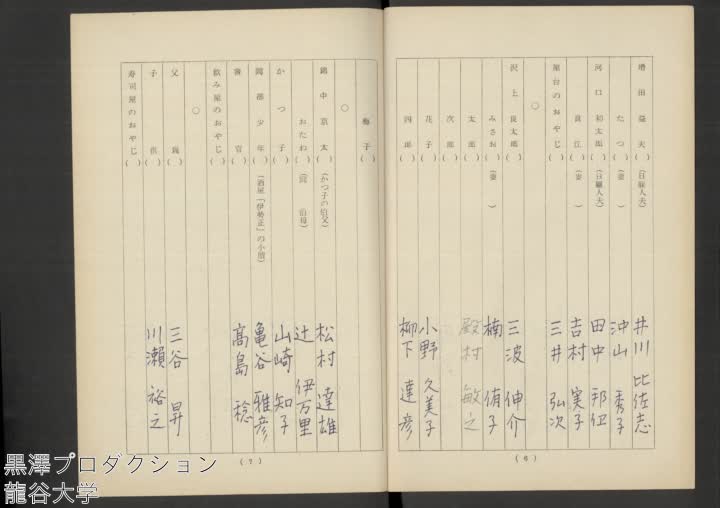 増田益夫（日雇人夫） 井川比佐志
たつ（妻） 沖山秀子
河口初太郎（日雇人夫） 田中邦衛
良江（妻） 吉村実子
屋台のおやじ（ ） 三井弘次
○
沢上良太郎（ ） 三波伸介
みさお（妻） 楠侑子
太郎（ ） 殿村敏之
次郎（ ）
花子（ ） 小野久美子
四郎（ ） 柳下達彦
（6）
梅子（ ）
○
綿中京太（かつ子の伯父） 松村達雄
おたね（同 伯母） 辻伊万里
かつ子（ ） 山崎知子
岡部少年（酒屋「伊勢正」の小僧） 亀谷雅彦
警官（ ） 高島稔
飲み屋のおやじ（ ）
○
父親（ ） 三谷昇
子供（ ） 川瀬裕之
寿司屋のおやじ（ ）
（7）
黒澤プロダクション
龍谷大学